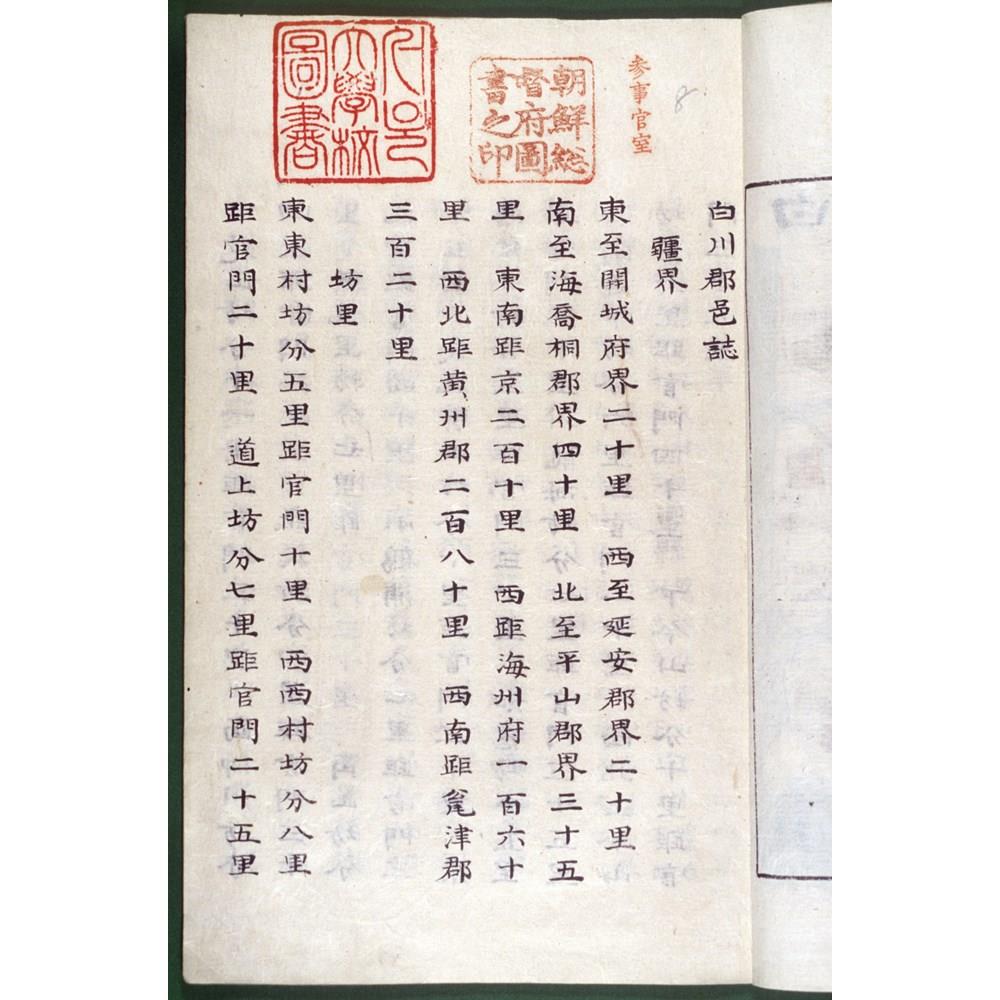 参事官室
8
朝鮮総
督府圖
書之印
서울
大學校
圖書
白川郡邑誌
疆界
東至開城府界二十里 西至延安郡界二十里
南至海喬桐郡界四十里 北至平山郡界三十五
里 東南距京二百十里 西距海州府一百六十
里 西北距黄州郡二百八十里 西南距瓮津郡
三百二十里
坊里
東東村坊分五里距官門十里 西西村坊分八里
距官門二十里 道上坊分七里距官門二十五里